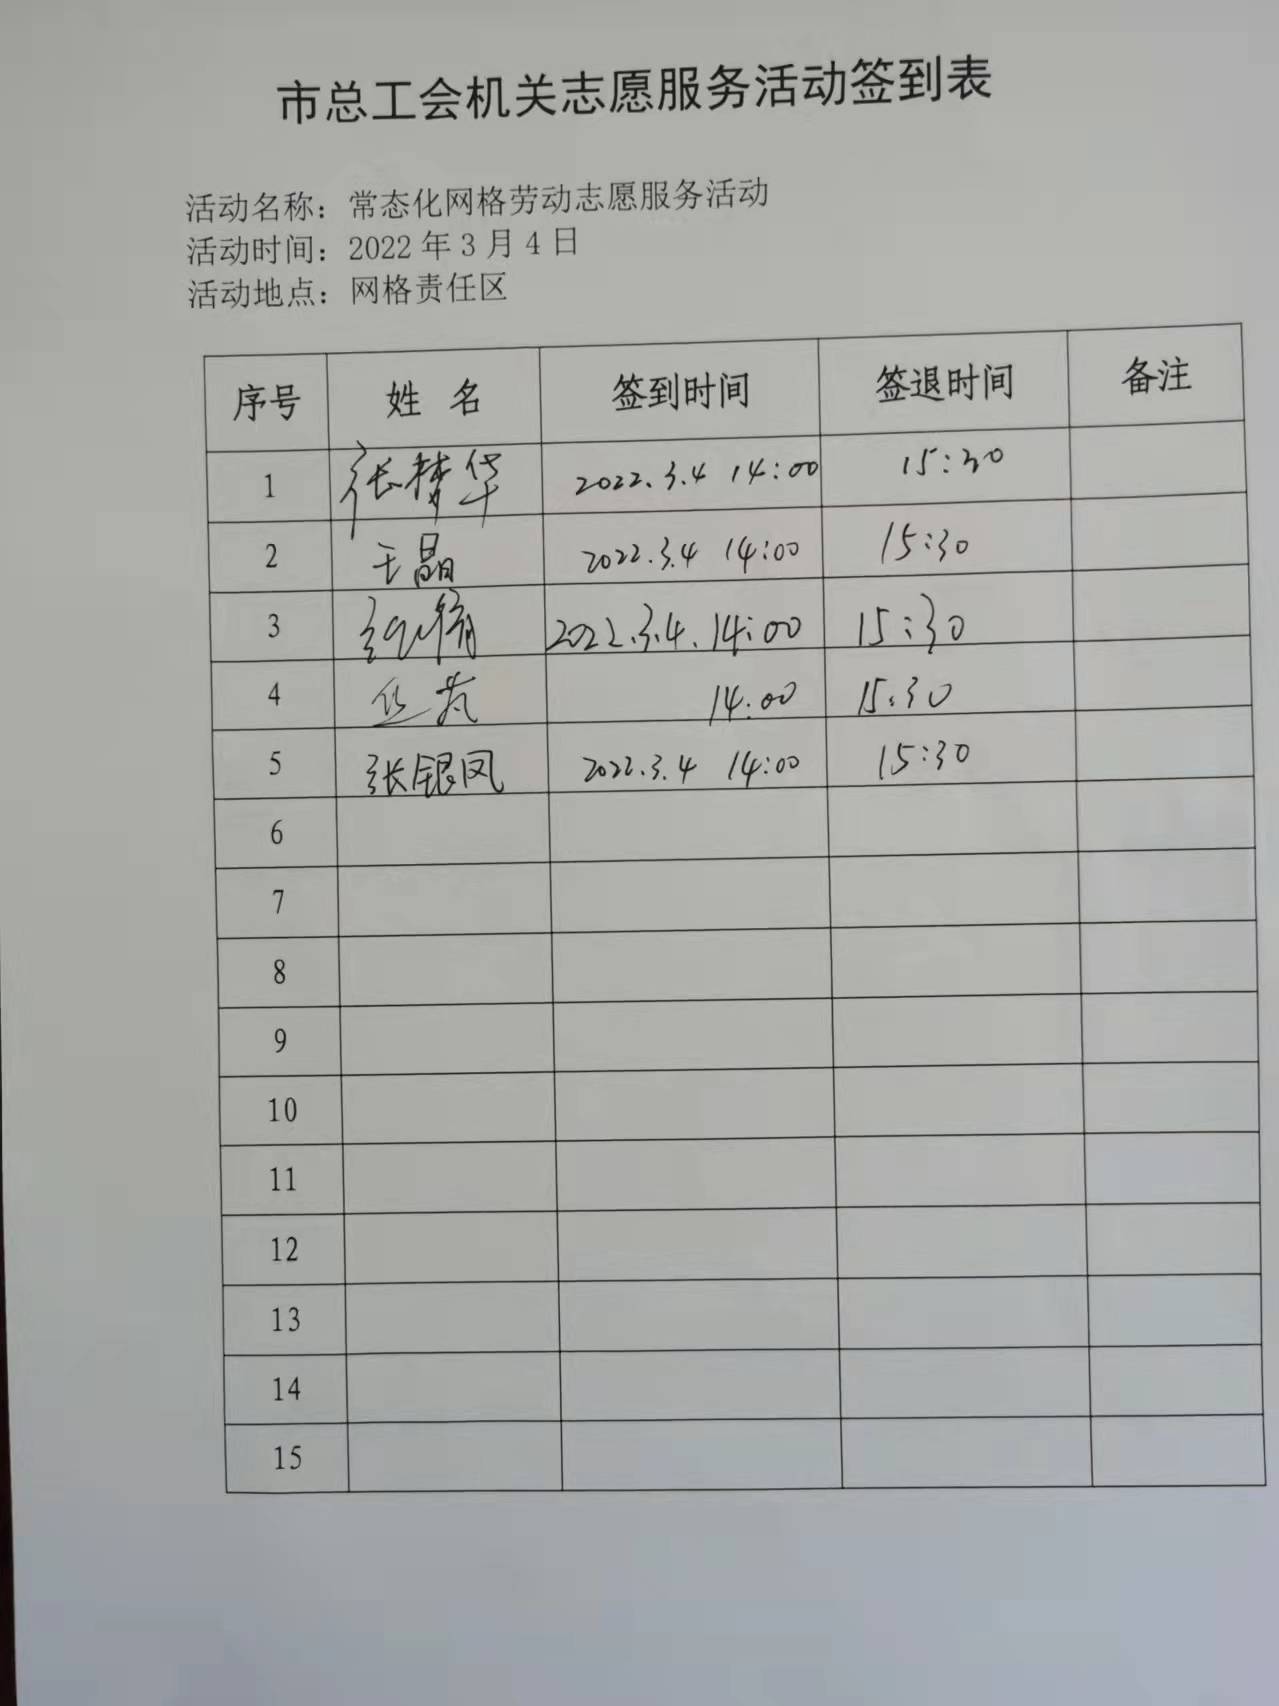 市总工会机关志愿服务活动签到表
活动名称：常态化网格劳动志愿服务活动
活动时间：2022年3月4日
活动地点：网格责任区
序号 姓 名 签到时间 签退时间 备注
1 张梦华 2022.3.4 14:00 15:30
2 王晶 2022.3.4 14:00 15:30
3 2022.3.4. 14:00 15:30
4 14:00 15:30
5 张银凤 2022.3.4 14:00 15:30
6
7
8
9
10
11
12
13
14
15